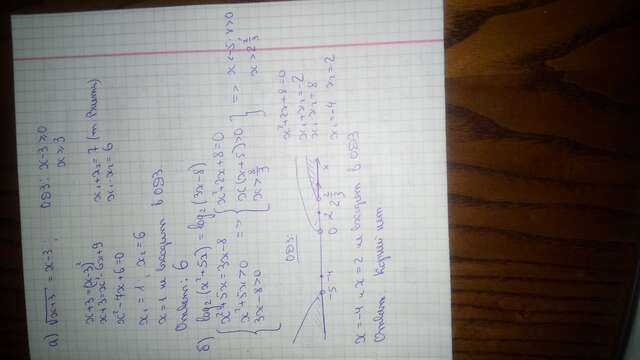 а) √x+3 = x-3 ; ОДЗ: x-3≥0
x≥3
x+3=(x-3)²
x+3=x²-6x+9
x²-7x+6=0
x₁+x₂=7 (т. Виета)
x₁·x₂=6
x₁=1 ; x₂=6
x=1 не входит в ОДЗ
Ответ: 6
б) log₂(x²+5x)=log₂(3x-8)
{ x²+5x=3x-8
x²+5x>0
3x-8>0
=> { x²+2x+8=0
x(x+5)>0
x>8/3
} => x<-5; x>0
x>2 2/3
ОДЗ:
-5 -4 0 2 2 2/3 x
x²+2x+8=0
x₁+x₂=-2
x₁·x₂=8
x₁=-4 x₂=2
x=-4 и x=2 не входит в ОДЗ
Ответ: Корней нет